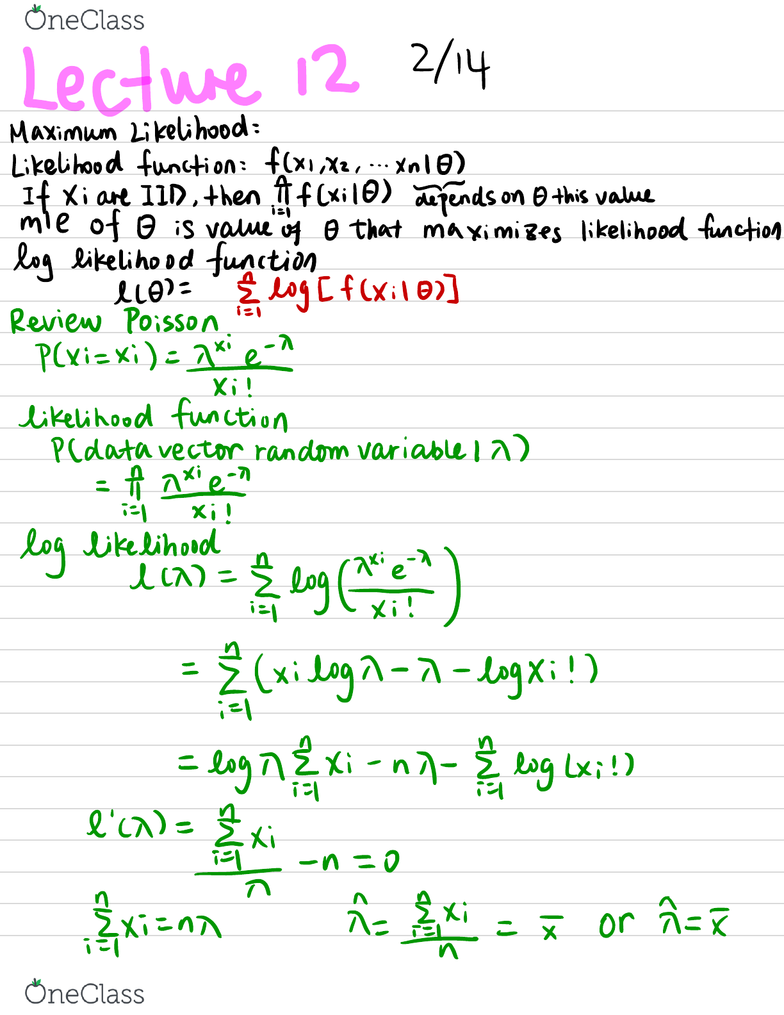 OneClass
Lecture 12 2/14
Maximum Likelihood:
Likelihood function: f(x1, x2, ... xn|θ)
If Xi are IID, then ∏ᵢ₌₁ⁿ f(xi|θ) depends on θ this value
mle of θ is value of θ that maximizes likelihood function
log likelihood function
l(θ) = ∑ᵢ₌₁ⁿ log[f(xi|θ)]
Review Poisson
P(Xi=xi) = λ^xi e^-λ / xi!
likelihood function
P(data vector random variable | λ)
= ∏ᵢ₌₁ⁿ λ^xi e^-λ / xi!
log likelihood
l(λ) = ∑ᵢ₌₁ⁿ log(λ^xi e^-λ / xi!)
= ∑ᵢ₌₁ⁿ (xi log λ - λ - log xi!)
= log λ ∑ᵢ₌₁ⁿ xi - nλ - ∑ᵢ₌₁ⁿ log(xi!)
l'(λ) = ∑ᵢ₌₁ⁿ xi / λ - n = 0
∑ᵢ₌₁ⁿ xi = nλ λ̂ = ∑ᵢ₌₁ⁿ xi / n = x̄ or λ̂ = x̄
OneClass